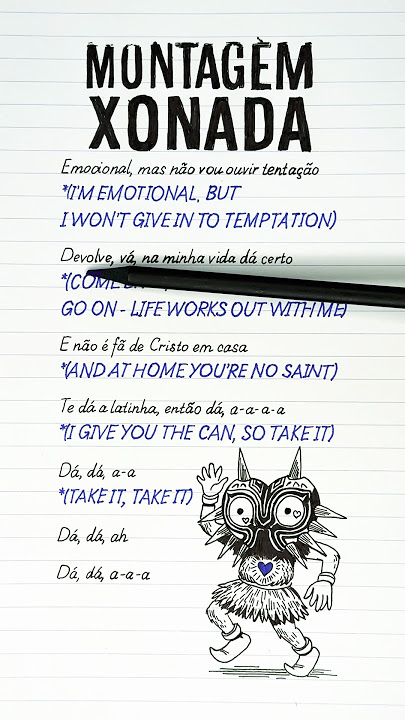 MONTAGEM
XONADA
Emocional, mas não vou ouvir tentação
*(I'M EMOTIONAL, BUT
I WON'T GIVE IN TO TEMPTATION)
Devolve, vá, na minha vida dá certo
*(COME
GO ON - LIFE WORKS OUT WITH ME)
E não é fã de Cristo em casa
*(AND AT HOME YOU'RE NO SAINT)
Te dá a latinha, então dá, a-a-a-a
*(I GIVE YOU THE CAN, SO TAKE IT)
Dá, dá, a-a
*(TAKE IT, TAKE IT)
Dá, dá, ah
Dá, dá, a-a-a